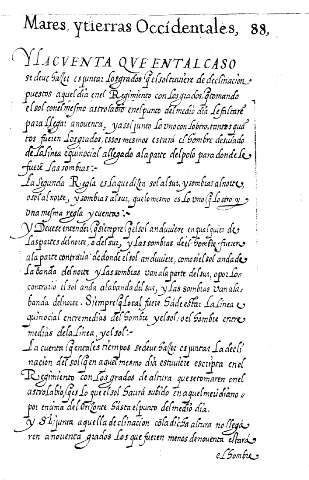 Mares, ytierras Occidentales, 88,
Y LA CVENTA QVE EN TAL CASO
se deve hazer es juntar los grados q̃ el sol tuviere de declinacion
puestos aquel dia en el Regimiento con los grados q̃ tomando
el sol con el mesmo astrolabio en el punto del medio dia le faltarẽ
para llegar a noventa, y assi junto lo uno con lo otro, tantos quã
tos fueren los grados, essos mesmos estará el hombre desviado
de la linea equinocial allegado a la parte del polo para donde le
fuere las sombras:~
La segunda Regla es la que dize sol al sur, y sombras al norte,
o sol al norte, y sombras al sur, que lo mesmo es lo uno q̃ lo otro
una mesma regla y cuenta:~
Y Devese entender q̃ siempre q̃ el sol anduviere en qualquier de
las partes del norte, o del sur, y las sombras del hombre fueren
a la parte contraria de donde el sol anduviere, como si el sol anda de
la banda del norte y las sombras van a la parte del sur, o por lo
contrario el sol anda a la banda del sur, y las sombras van a la
banda del norte. Siempre q̃ tal fuere ha de estar la linea e
quinocial entremedias del hombre y el sol: o el hombre entre
medias de la linea, y el sol:~
La cuenta q̃ en tales tiempos se deve hazer es juntar la decli
nacion del sol q̃ en aquel mesmo dia estuviere escripta en el
Regimiento con los grados de altura que se tomaren en el
astrolabio, q̃ es lo que el sol havrá subido en aquel meridiano
por encima del orizonte hasta el punto del medio dia.
Y si junta aquella declinacion cõ la dicha altura no llega
ren a noventa grados los que fueren menos de noventa estará
el hombre